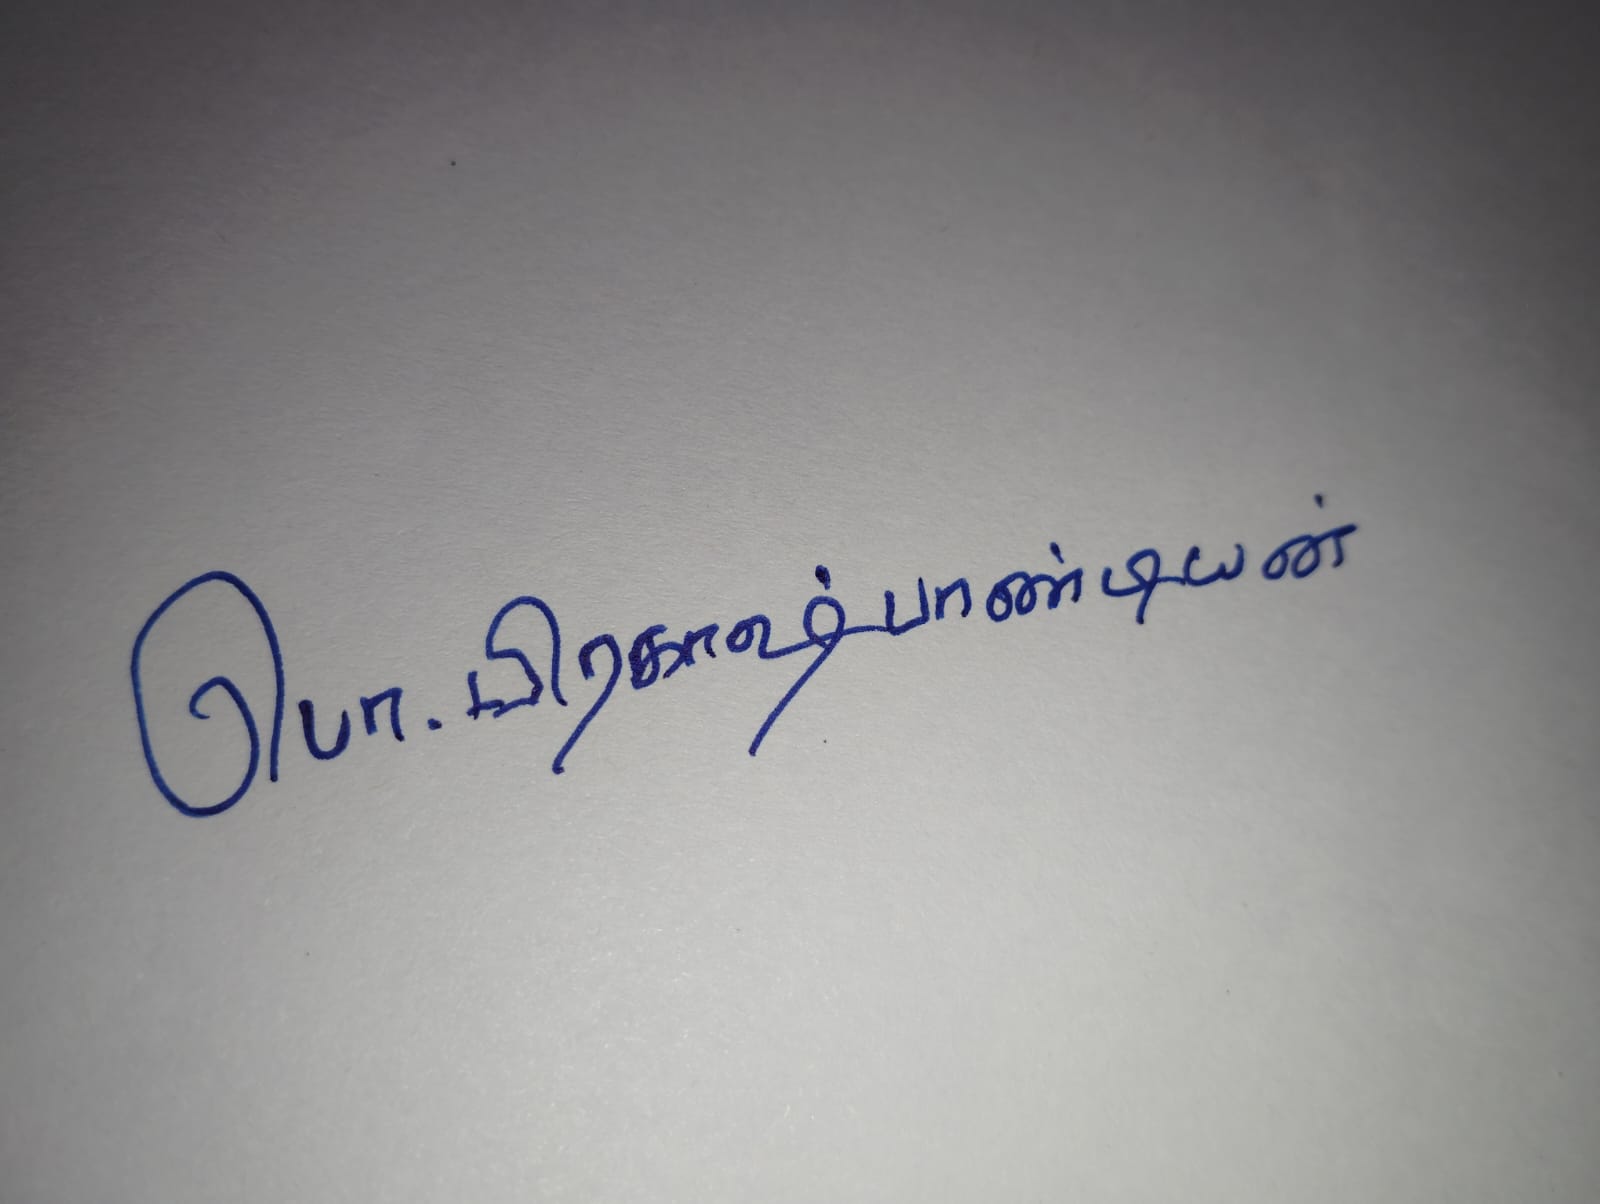 பொ. பிரகாஷ்பாண்டியன்